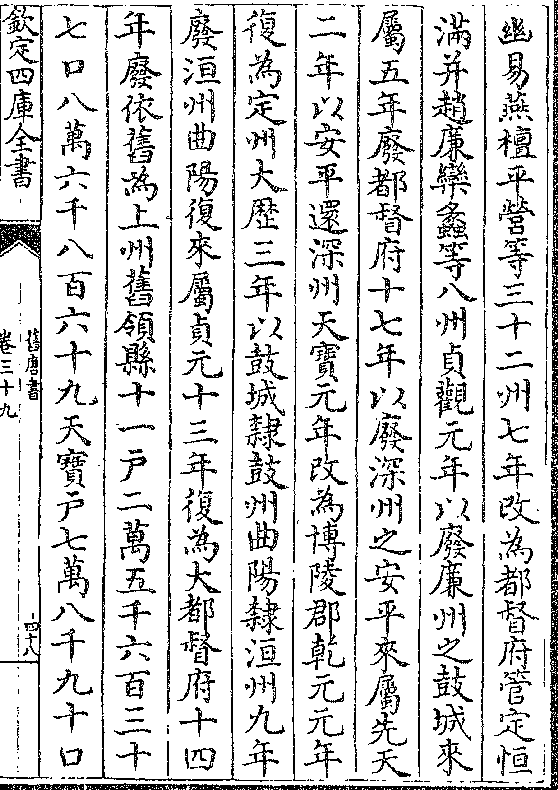 幽易燕檀平營等三十二州七年改為都督府管定恒
滿并趙廉欒蠡等八州貞觀元年以廢廉州之鼓城來
屬五年廢都督府十七年以廢深州之安平來屬先天
二年以安平還深州天寶元年改為博陵郡乾元元年
復為定州大歷三年以鼓城隸鼓州曲陽隸洹州九年
廢洹州曲陽復來屬貞元十三年復為大都督府十四
年廢依舊為上州舊領縣十一戸二萬五千六百三十
七口八萬六千八百六十九天寶戸七萬八千九十口
欽定四庫全書
舊唐書
卷三十九
四十八